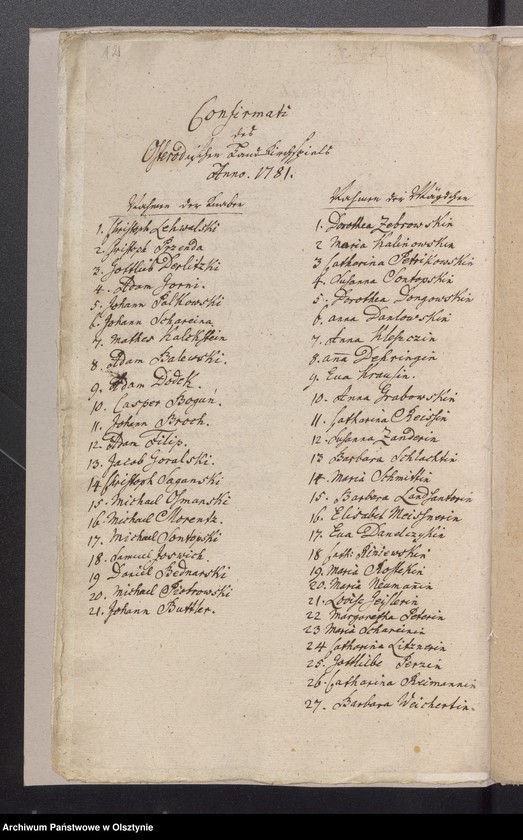 121
Confirmati
des
Osterodischen Land Kirchspiels
Anno. 1781.
Nahmen der Knaben
1. Christoph Lehwalski
2. Christoph Przenda
3. Gottlieb Derlitzki
4. Adam Gorni.
5. Johann Salkowski
6. Johann Schareina
7. Mathes Kalchstein
8. Adam Balewski.
9. Adam Dodek.
10. Casper Bogun.
11. Johann Broch.
12 Adam Filip.
13. Jacob Goralski.
14 Christoph Saganski
15. Michael Osmanski
16. Michael Morentz.
17. Michael Sontowski
18. Samuel Joswich.
19 Daniel Bednarski
20. Michael Piotrowski
21. Johann Buttler.
Nahmen der Mägdchen
1. Dorothea Zebrowskin
2 Maria Kalinowskin
3 Catharina Petrikowskin
4. Susanna Sontopskin
5. Dorothea Dongowskin
6. anna Danlowskin
7. Anna Kleszczin
8. aña Dehringin
9. Eva Krausin.
10. Anna Grabowskin
11. Catharina Reissin
12. Susanna Zanderin
13 Barbara Schlachtin
14. Maria Schmittin
15. Barbara Landsanterin
16. Elisabet Meissnerin
17. Eva Danelczykin
18 Cath: Riniewskin
19. Maria Rostekin
20. Maria Neumanin
21. Lovise Geislerin
22 Margaretha Peterin
23 Maria Schareinin
24 Catharina Litznerin
25. Gottliebe Perzin
26. Catharina Reimannin
27. Barbara Weichertin.
Archiwum Państwowe w Olsztynie